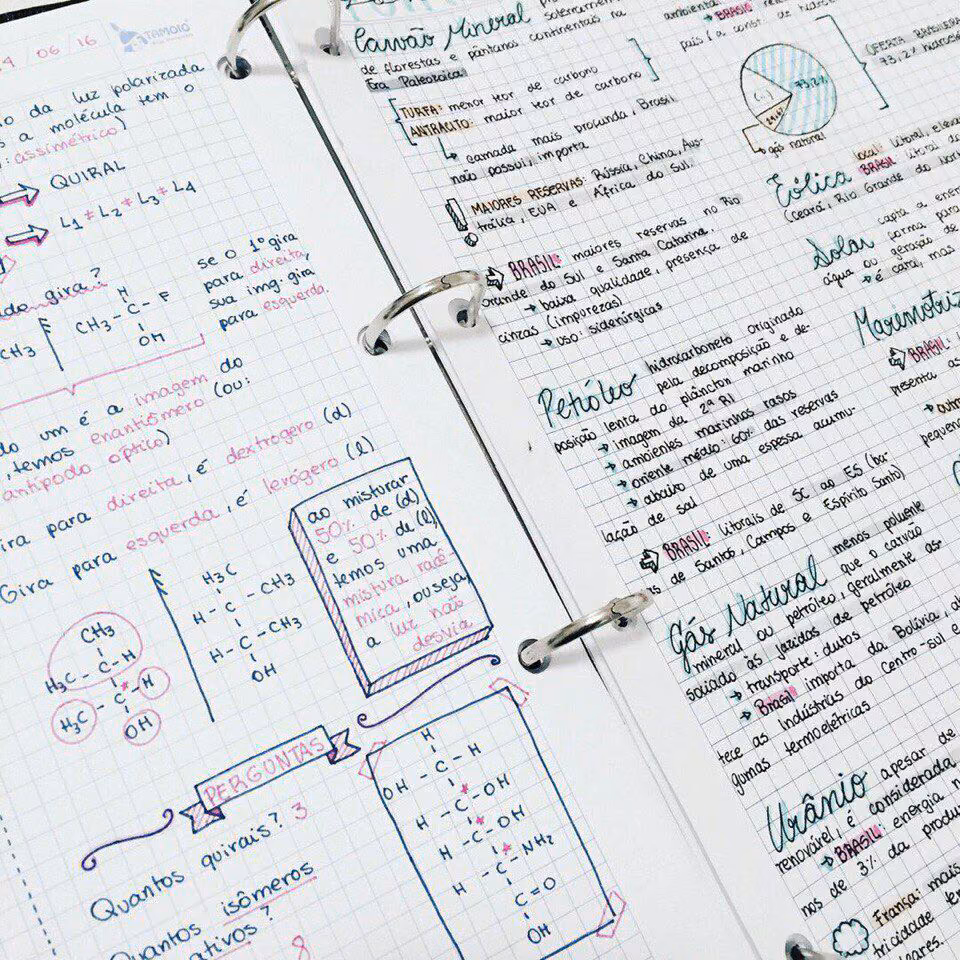 06 / 16
TAMOIO
da luz polarizada
a molécula tem o
assimétrico)
QUIRAL
L1 ≠ L2 ≠ L3 ≠ L4
gira?
se o 1º gira
para direita,
sua img. gira
para esquerda.
H
CH3 - C - F
OH
CH3
um é a imagem do
, temos enantiômero (ou:
antípodo óptico)
para direita, é dextrogero (d)
Gira para esquerda, é levógero (l)
ao misturar
50% de (d)
e 50% de (l),
temos uma
mistura racê-
mica, ou seja,
a luz não
desvia
CH3
H3C - C - H
H3C - C* - H
OH
H3C
H - C - CH3
H - C - CH3
OH
PERGUNTAS
Quantos quirais? 3
Quantos isômeros
ativos?
8
H
OH - C - H
H - C* - OH
H - C* - OH
H - C* - NH2
C = O
OH
Carvão Mineral
de florestas e pântanos continentais na
Era Paleozoica
TURFA: menor teor de carbono
ANTRACITO: maior teor de carbono
camada mais profunda, Brasil
não possui, importa
MAIORES RESERVAS: Rússia, China, Aus-
trália, EUA e África do Sul
BRASIL: maiores reservas no Rio
Grande do Sul e Santa Catarina.
→ baixa qualidade, presença de
cinzas (impurezas)
→ uso: siderúrgicas
Petróleo hidrocarboneto originado
pela decomposição e de-
posição lenta do plâncton marinho
→ imagem da 2ª RI
→ ambientes marinhos rasos
→ oriente médio: 60% das reservas
→ abaixo de uma espessa acumu-
lação de sal
BRASIL: litorais de SC ao ES (ba-
de Santos, Campos e Espírito Santo)
Gás Natural menos poluente
que o carvão
mineral ou petróleo, geralmente as-
sociado às jazidas de petróleo
→ transporte: dutos
→ Brasil importa da Bolívia,
tece as indústrias do Centro-sul e
gumas termoelétricas
Urânio apesar de
renovável, é considerada
→ BRASIL: energia
nos de 3% da produ
França: mais
tricidade
ambiental
BRASIL
73,2%
(...)
gás natural
OFERTA
73,2% hidroelé
Eólica local: litoral,
BRASIL: litoral do
(Ceará, Rio Grande do
Solar capta a ener
forma
água ou geração de
→ é cara, mas
Maremotriz
BRASIL:
presenta
→ outro